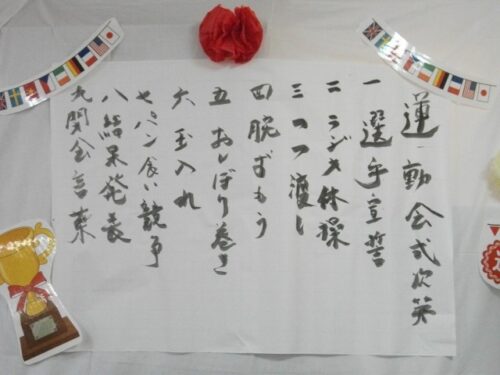 運動会式次第
一 選手宣誓
二 ラジオ体操
三 つつ渡し
四 腕ずもう
五 おしぼり巻き
六 玉入れ
七 パン食い競争
八 結果発表
九 閉会言葉